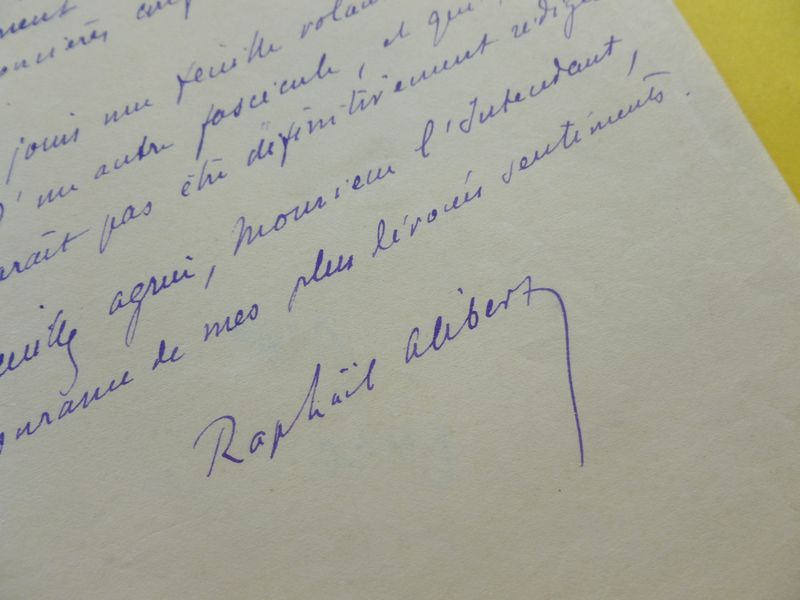 jouis une feuille volan
d'un autre fascicule, et qui
araît pas être définitivement rédigé
euillez agréer, Monsieur l'Intendant,
surance de mes plus dévoués sentiments.
Raphaël Alibert